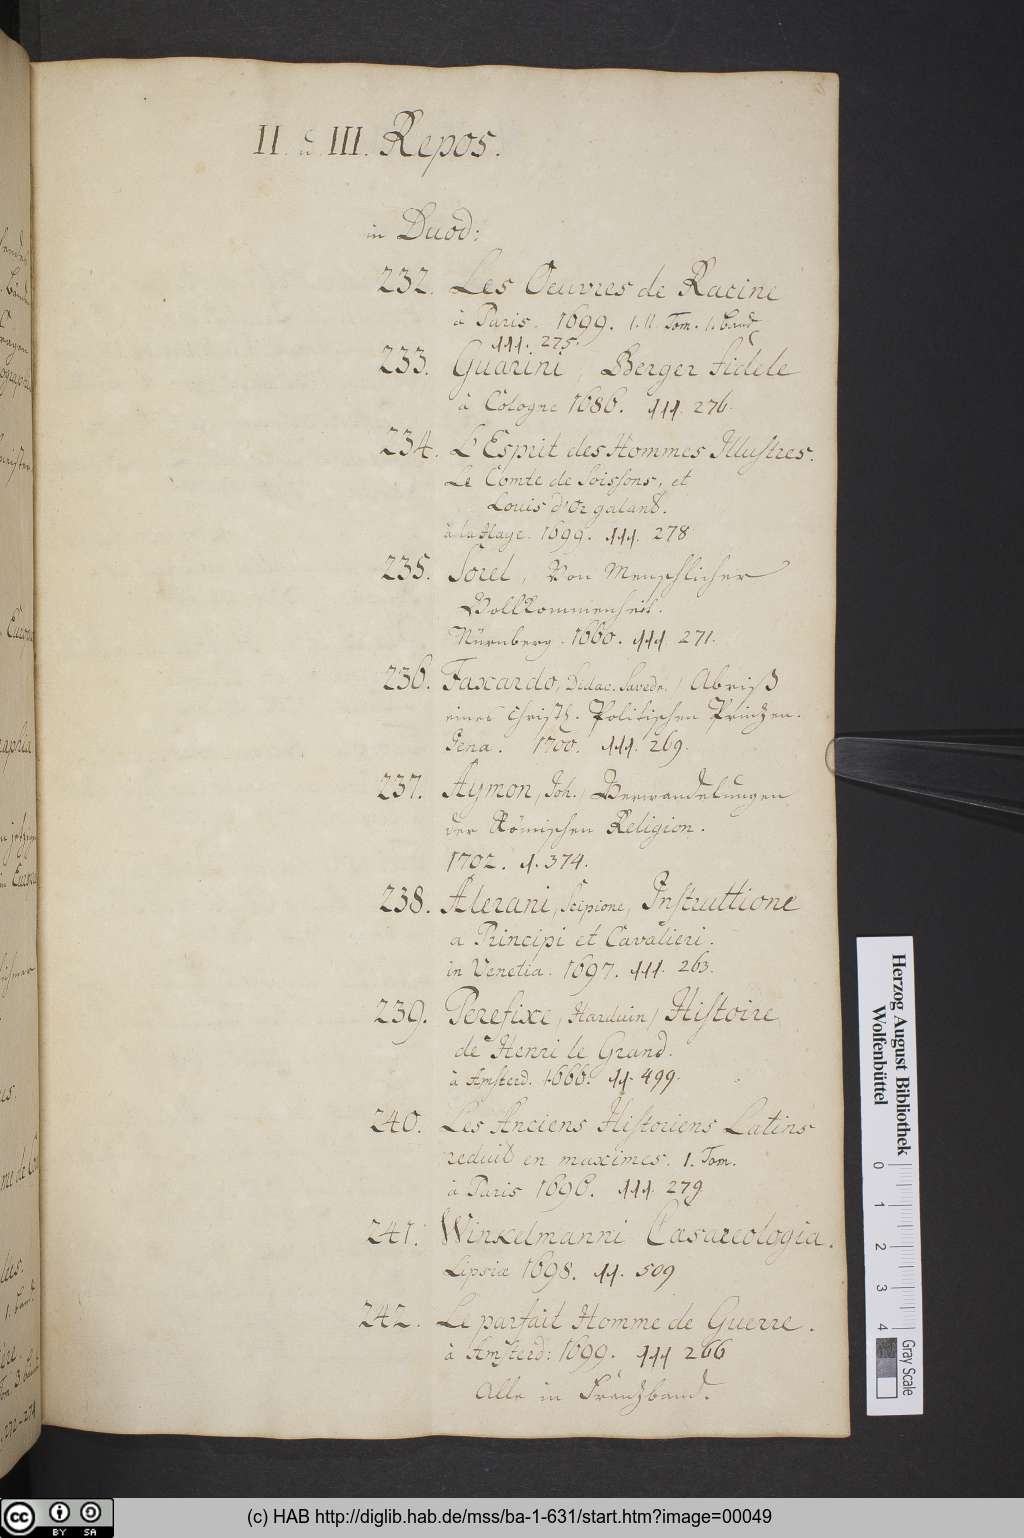 II. u. III. Repos.
in Duod:
232. Les Oeuvres de Racine
à Paris. 1699. I. II. Tom. 1. band
111. 275.
233. Guarini, Berger fidele
à Cologne 1686. 111. 276.
234. L'Esprit des Hommes Illustres.
Le Comte de Soissons, et
Louis d'or galant.
à la Haye. 1699. 111. 278
235. Sorel, Von Menschlicher
Vollkommenheit.
Nürnberg. 1660. 111. 271.
236. Faxardo, Didac. Savedr. / Abriß
eines Christl. Politischen Prinzen.
Jena. 1700. 111. 269.
237. Aymon, Joh. / Verwandelungen
der Römischen Religion.
1702. 1. 374.
238. Alerani, Scipione, Instruttione
a Principi et Cavalieri.
in Venetia. 1697. 111. 263.
239. Perefixe, Harduin / Histoire
de Henri le Grand.
à Amsterd. 1666. 11. 499.
240. Les Anciens Historiens Latins
reduit en maximes. 1. Tom.
à Paris 1696. 111. 279
241. Winkelmanni Caesareologia.
Lipsiæ 1698. 11. 509
242. Le parfait Homme de Guerre.
à Amsterd: 1699. 111 266
Alle in Frantzband.
Herzog August Bibliothek
Wolfenbüttel
0 1 2 3 4
Gray Scale
cc BY SA
(c) HAB http://diglib.hab.de/mss/ba-1-631/start.htm?image=00049